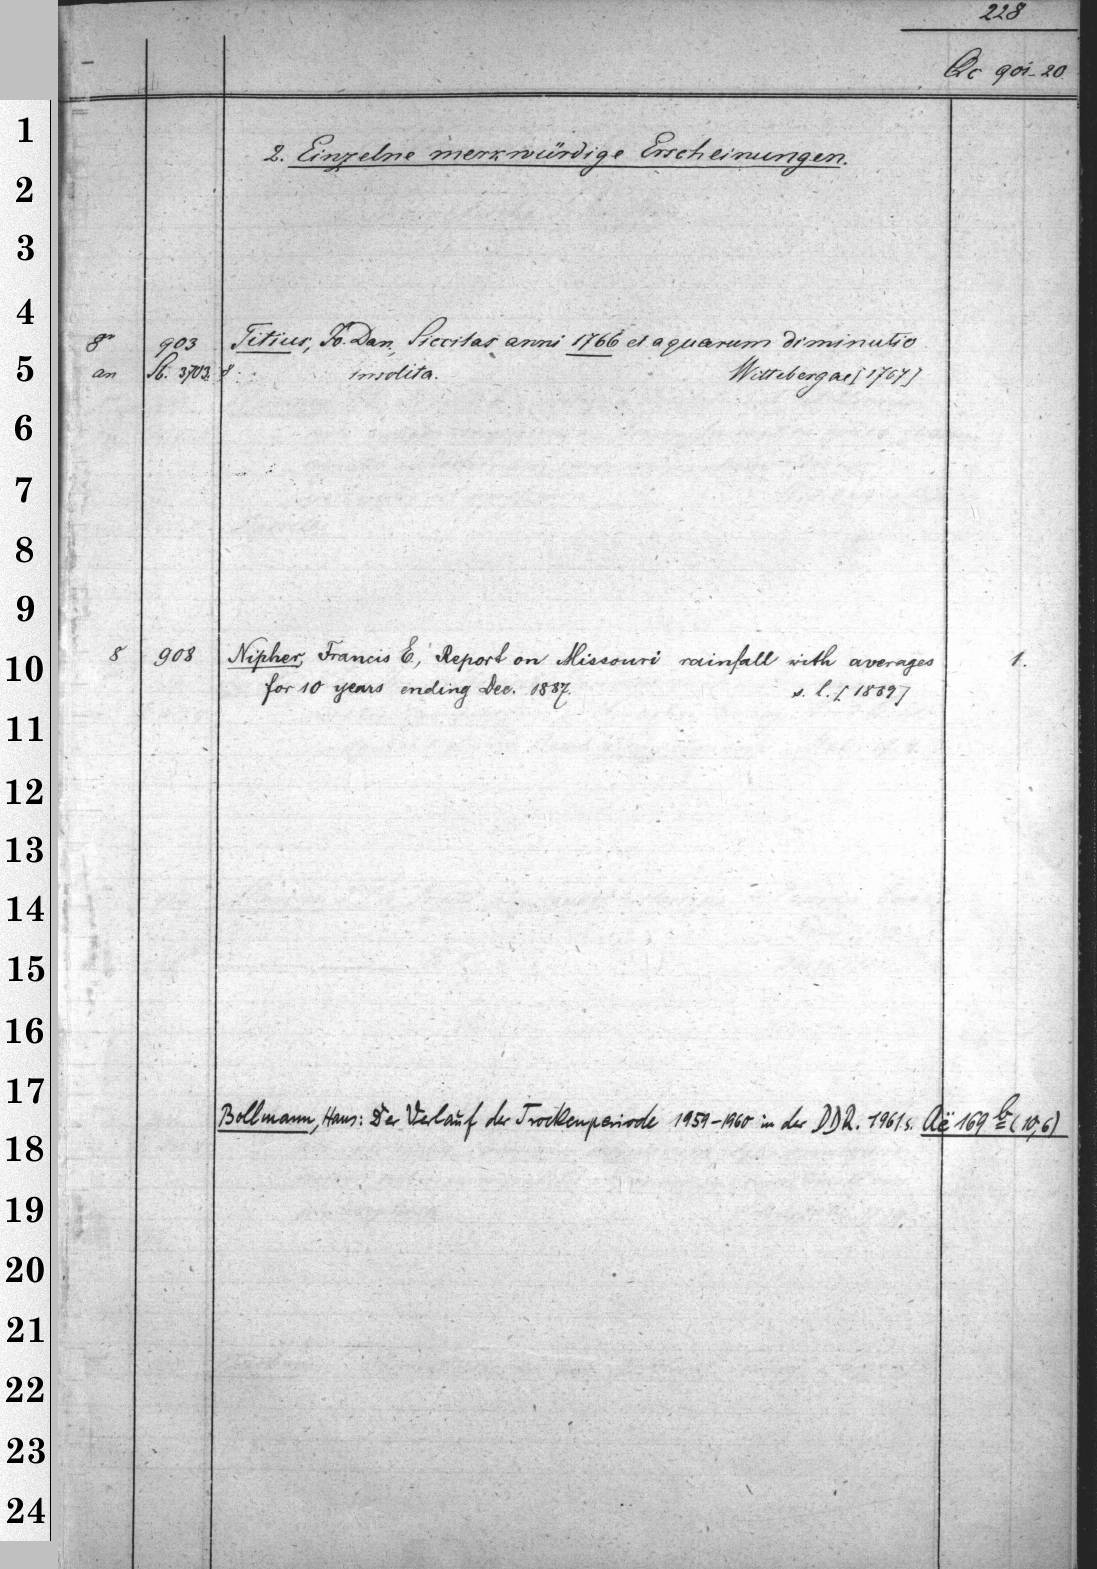 228
Qc 901-20
2. Einzelne merkwürdige Erscheinungen.
8° 903 Titius, Jo. Dan., Siccitas anni 1766 et aquarum diminutio
an Sb. 3703. 8 insolita. Wittebergae [1767]
8 908 Nipher, Francis E., Report on Missouri rainfall with averages 1.
for 10 years ending Dec. 1887. s. l. [1889]
Bollmann, Hans: Der Verlauf der Trockenperiode 1959-1960 in der DDR. 1961 s. Aë 169 b (10,6)
1
2
3
4
5
6
7
8
9
10
11
12
13
14
15
16
17
18
19
20
21
22
23
24